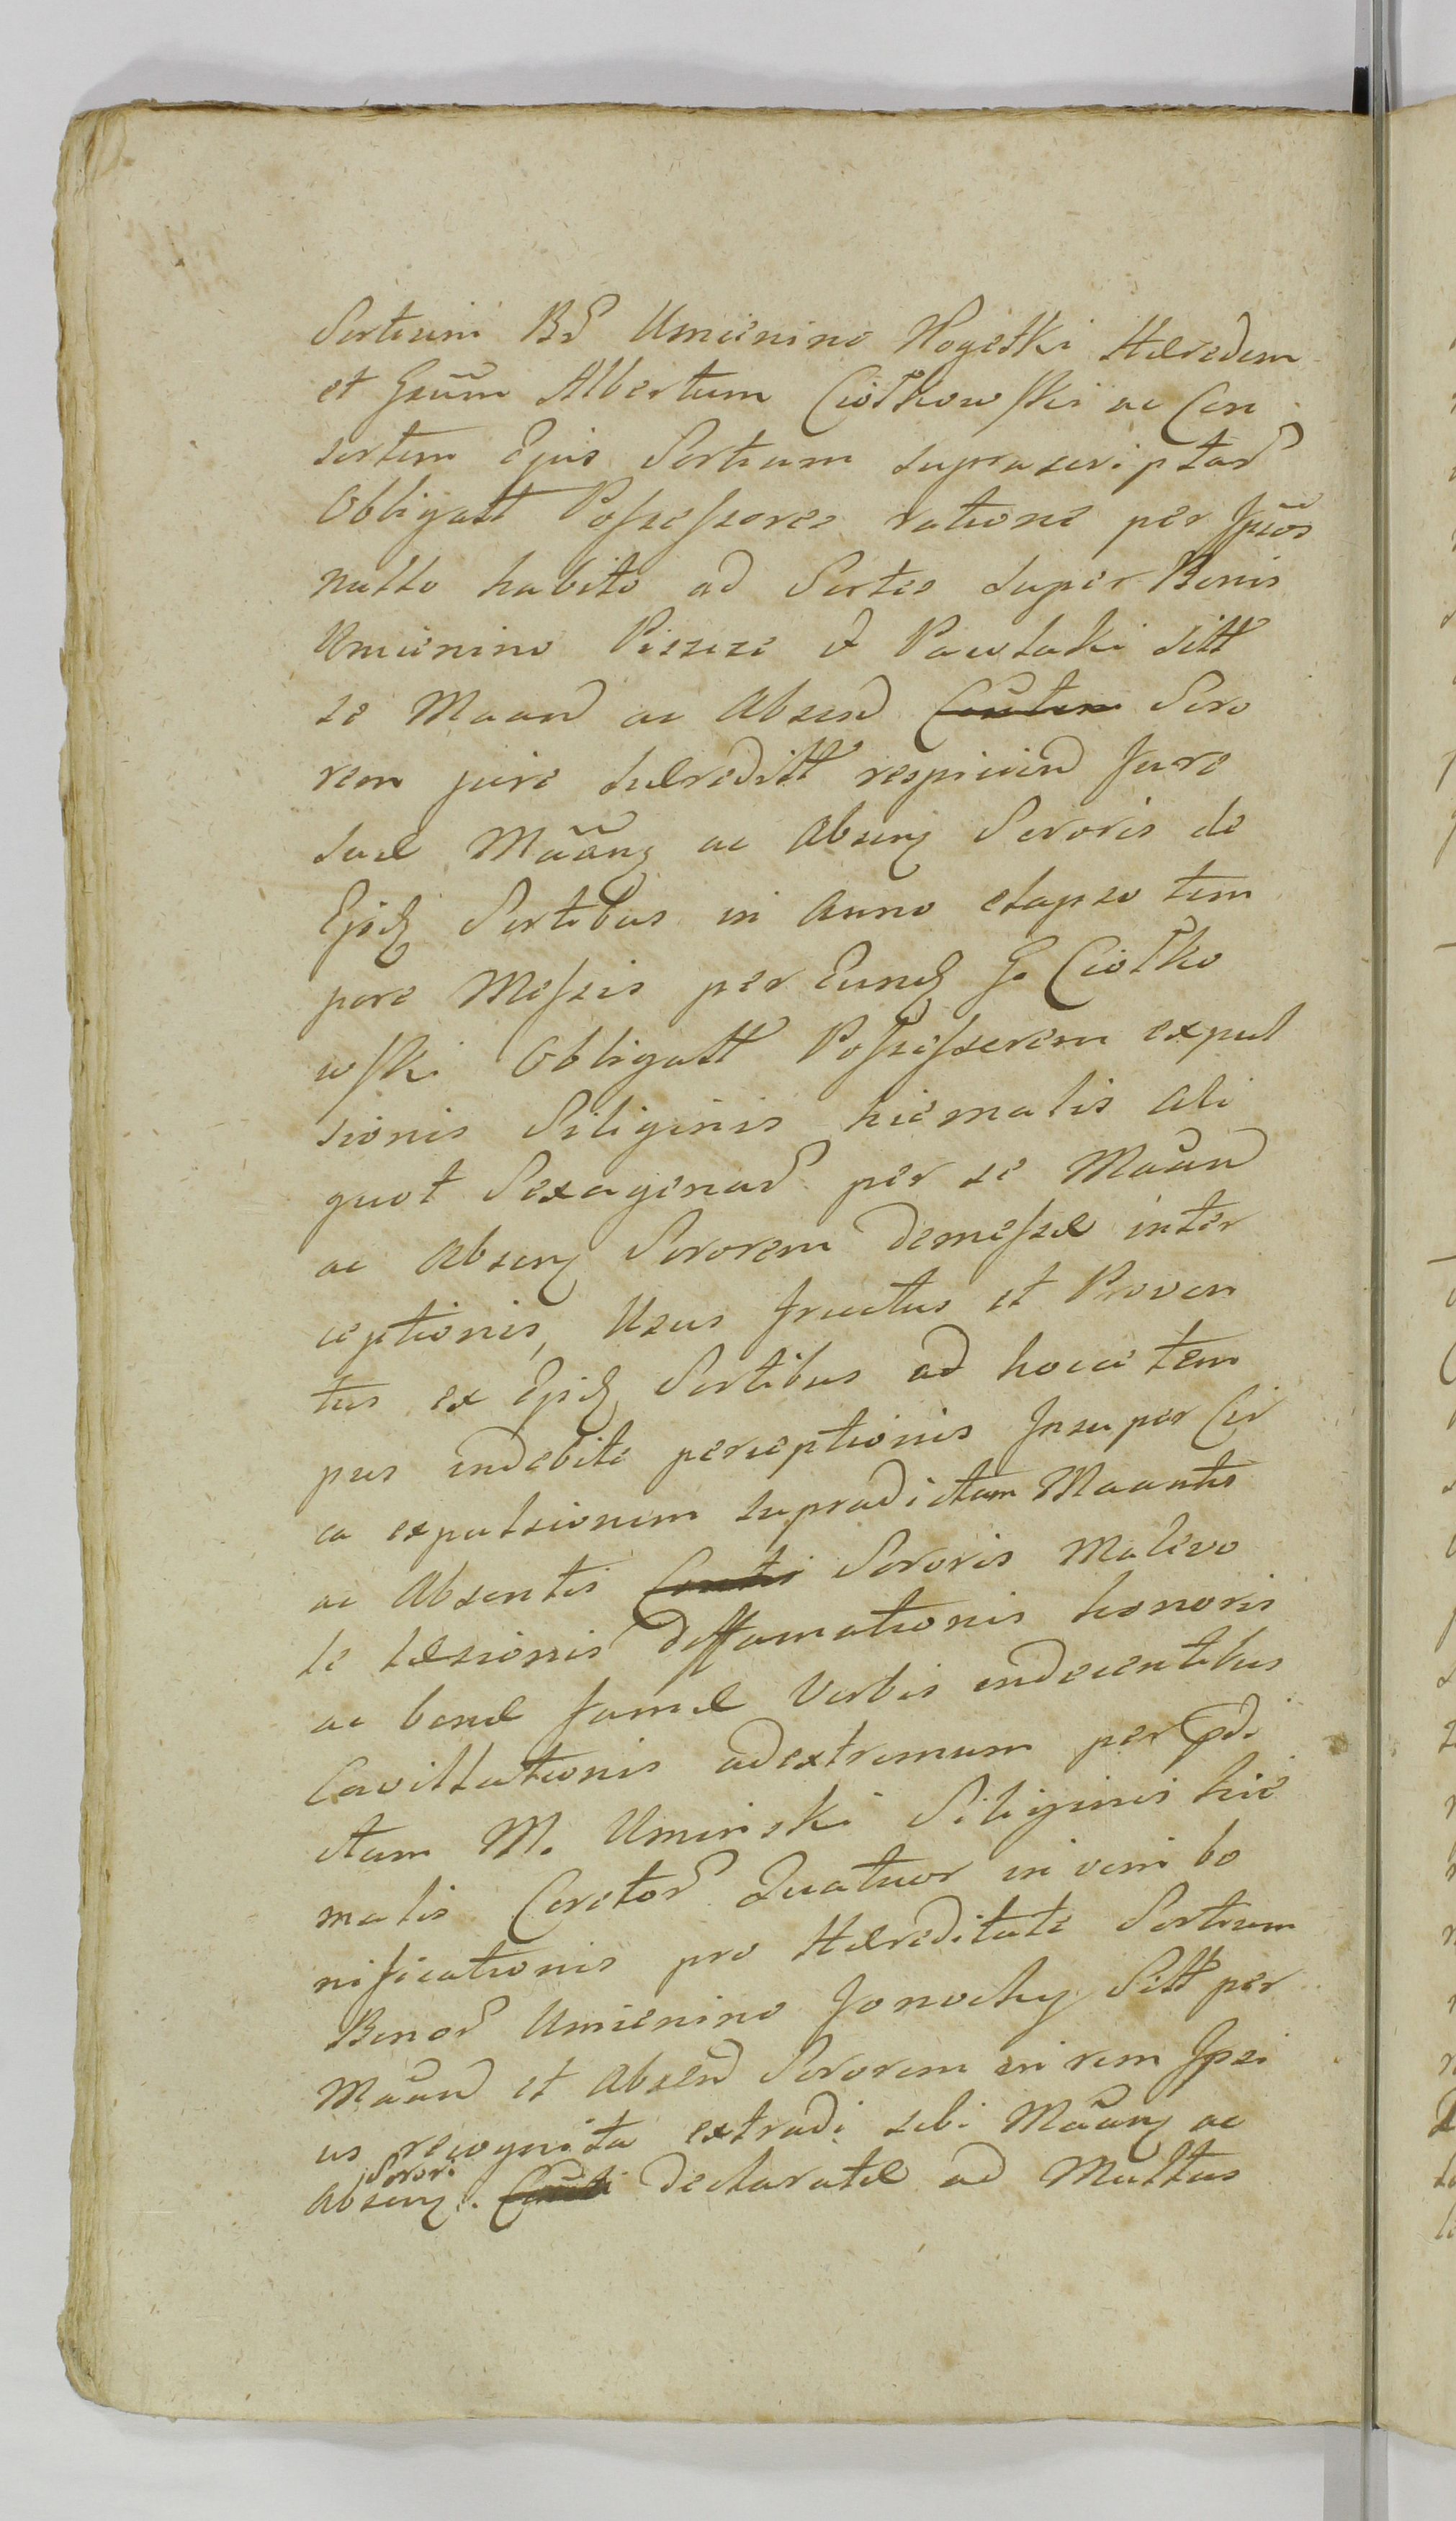 Sortium BS Umienino Hogetki Hæredem
et Gsum Albertum Ciołkowski ac Con
sortem Ejus Sortium suprascriptar
Obligatt Possessores ratione per Ipsos
nullo habito ad Sortes super Bonis
Umienino Piszcze & Pawłaki sitt
se Maand ac Absend Contem Soro
rem jure hæreditt respiciend Jure
suæ Maang ac Abseng Sororis de
Ejsd Sortibus in Anno elapso tem
pore Messis per Eund G. Ciołko
wski Obligatt Possessorem expul
sionis Siliginis hiemalis ali
quot Sexagenas per se Maan
ac Abseng Sororem demessæ inter
ceptionis, Usus fructus et Proven
tus ex Ejsd Sortibus ad hocce tem
pus indebite perceptionis Insuper Cir
ca expulsionem supradictam Maantis
ac Absentis Contis Sororis Malevo
le læsionis diffamationis honoris
ac bonæ famæ Verbis indecentibus
Cavillationis adextremum per pdi
ctum M. Uminski Siliginis hie
malis Coretor Quatuor in vim bo
nificationis pro Hæreditate Sortium
Bonor Umienino Jonochy Sitt per
Maand et Absend Sororem in rem Ipsi
us recognita extradi sibi Maang ac
Abseng. Conti Sorori declaratæ ad Multas